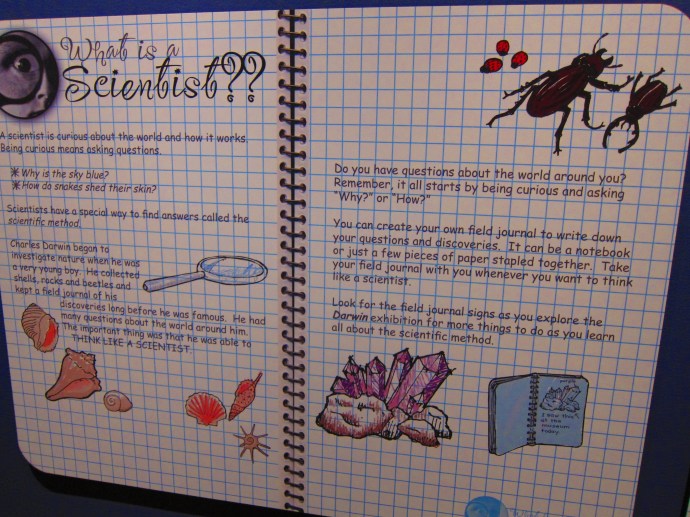 What is a
Scientist??
A scientist is curious about the world and how it works.
Being curious means asking questions.
Why is the sky blue?
How do snakes shed their skin?
Scientists have a special way to find answers called the
scientific method.
Charles Darwin began to
investigate nature when he was
a very young boy. He collected
shells, rocks and beetles and
kept a field journal of his
discoveries long before he was famous. He had
many questions about the world around him.
The important thing was that he was able to
THINK LIKE A SCIENTIST.
Do you have questions about the world around you?
Remember, it all starts by being curious and asking
"Why?" or "How?"
You can create your own field journal to write down
your questions and discoveries. It can be a notebook
or just a few pieces of paper stapled together. Take
your field journal with you whenever you want to think
like a scientist.
Look for the field journal signs as you explore the
Darwin exhibition for more things to do as you learn
all about the scientific method.
I saw this
at the
museum
today